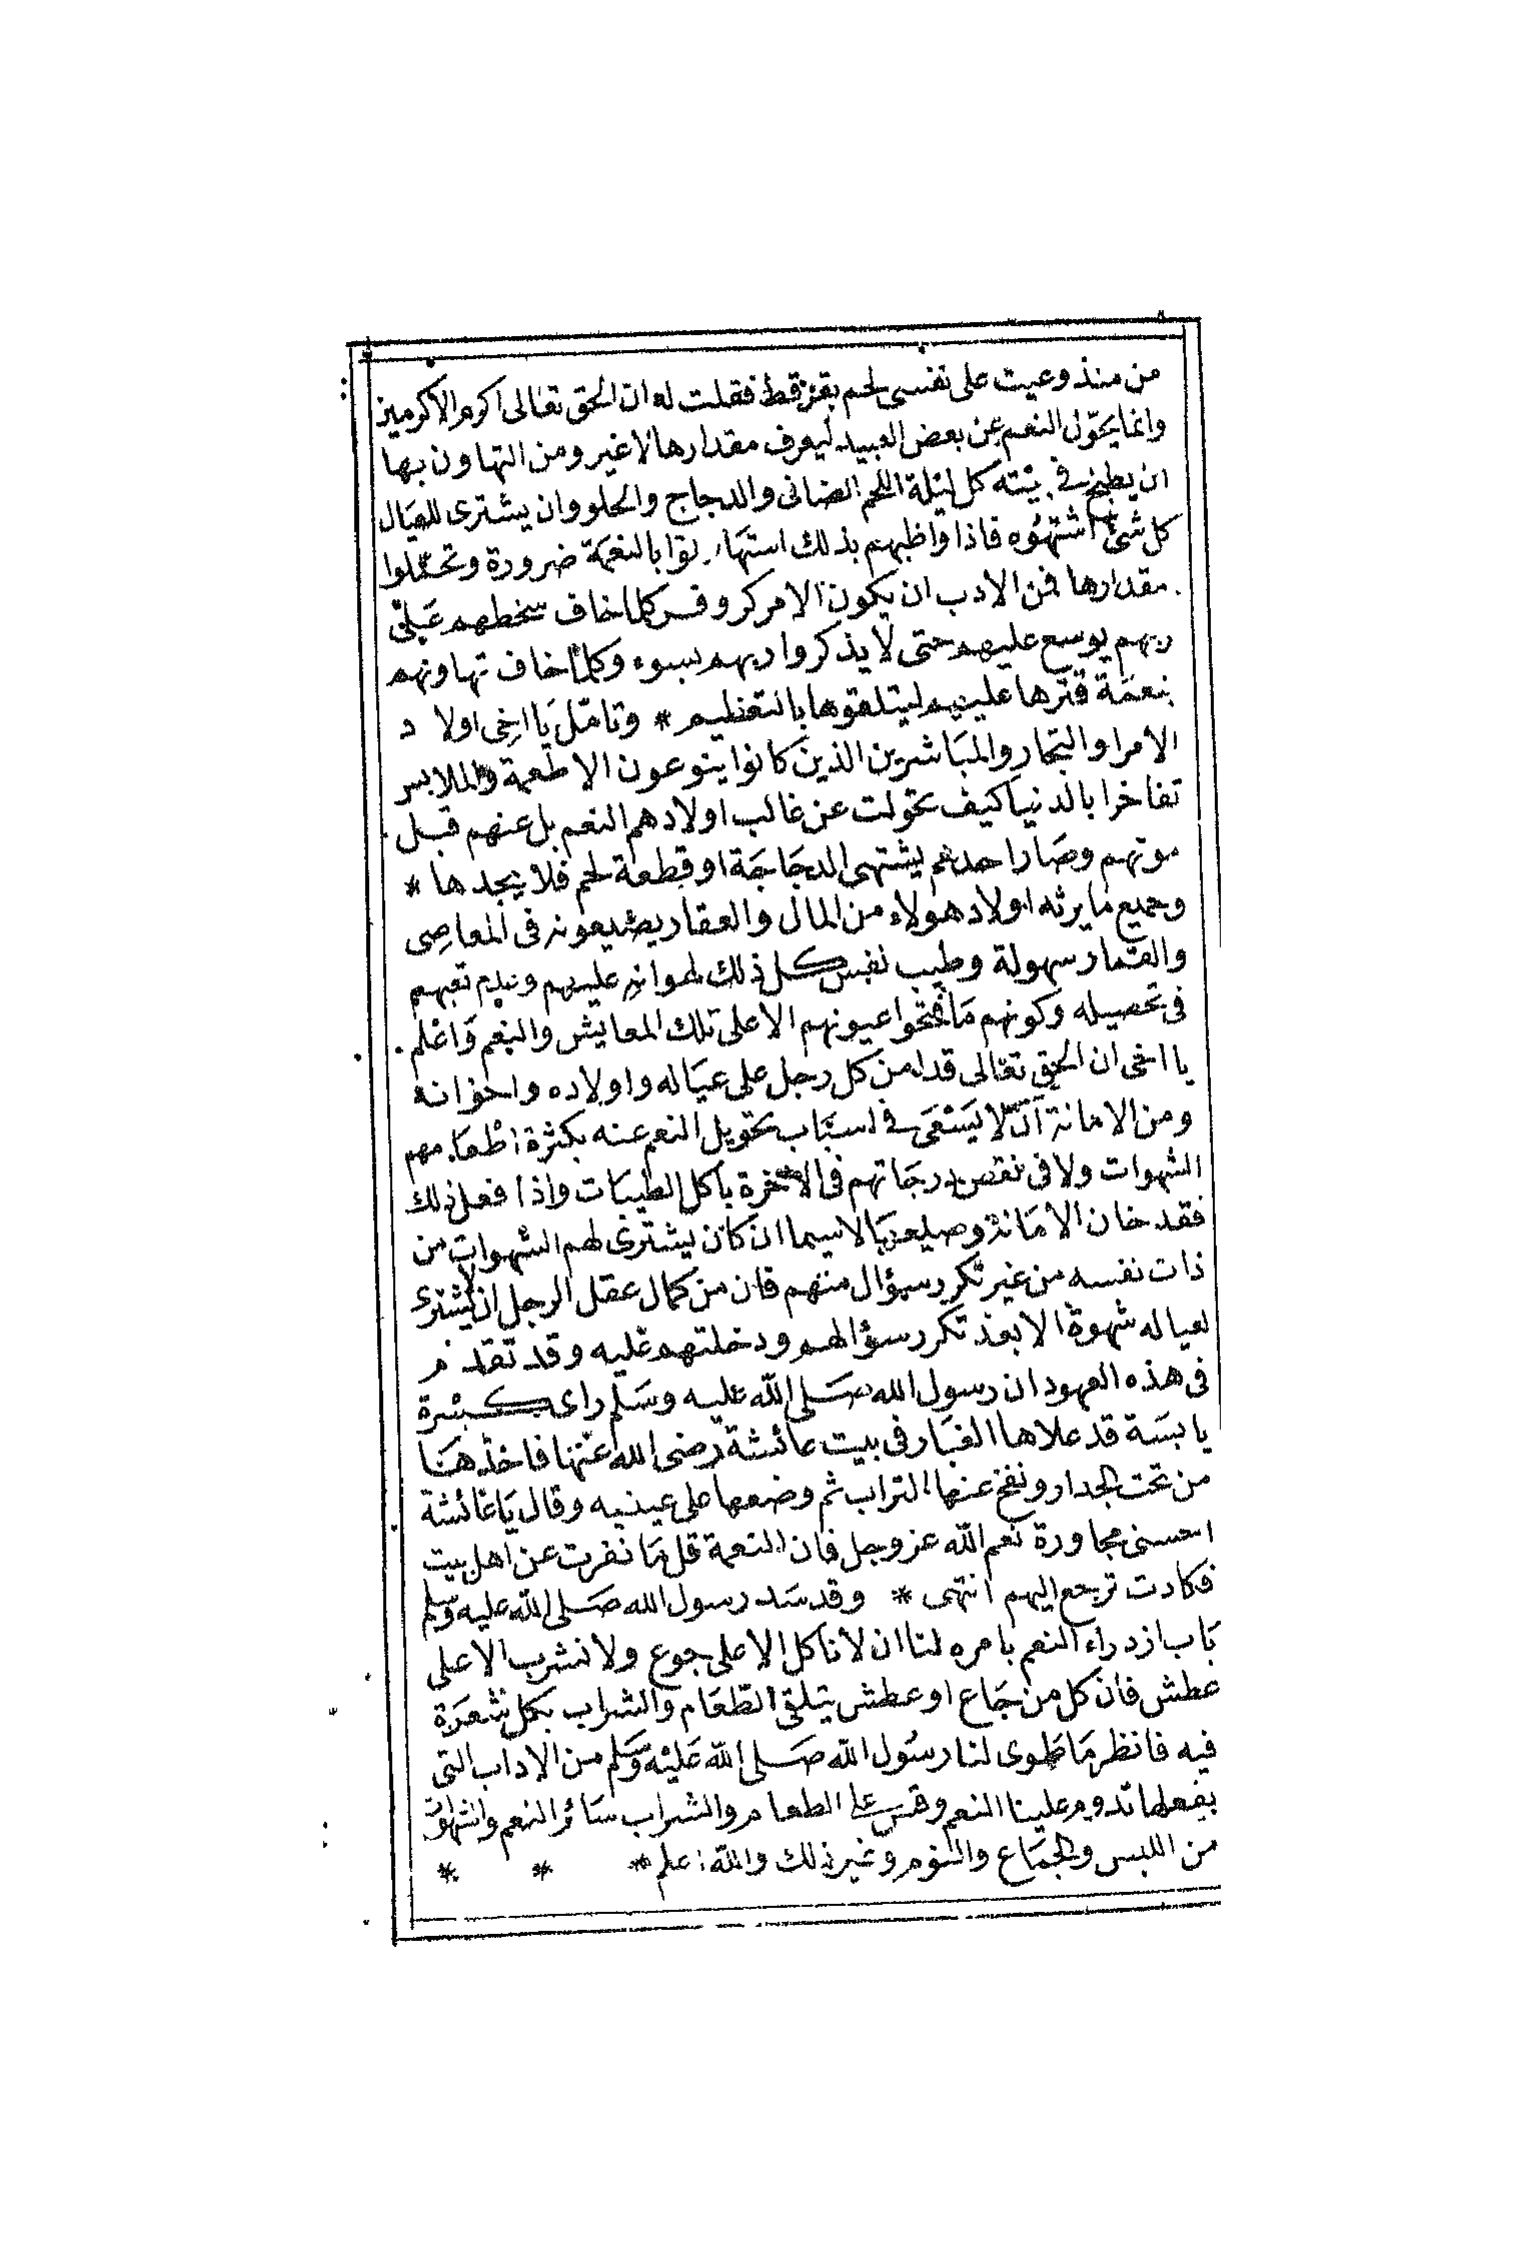 من منذ وعيت على نفسى لحم بقر قط فقلت له ان الحق تعالى اكرم الاكرمين
وانما يحوّل النعم عن بعض العبيد ليعرف مقدارها لا غير ومن التهاون بها
ان يطبخ فى بيته كل ليلة اللحم الضانى والدجاج والحلو وان يشترى للعيال
كل شئ اشتهوه فاذا واظبهم بذلك استهانوا بالنعمة ضرورة وتحملوا
مقدارها فمن الادب ان يكون الامر كر وفر كلما خاف سخطهم على
ربهم يوسع عليهم حتى لا يذكروا ربهم بسوء وكلما خاف تهاونهم
بنعمة قترها عليهم ليتلقوها بالتعظيم * وتامّل يا اخى اولاد
الامرا والتجار والمباشرين الذين كانوا ينوعون الاطعمة والملابس
تفاخرا بالدنيا كيف تحولت عن غالب اولادهم النعم بل عنهم قبل
موتهم وصار احدهم يشتهى الدجاجة او قطعة لحم فلا يجدها *
وجميع ما يرثه اولاد هولاء من المال والعقار يضيعونه فى المعاصى
والقمار سهولة وطيب نفس كل ذلك لهوانه عليهم وعدم تعبهم
فى تحصيله وكونهم ما فتحوا عيونهم الا على تلك المعايش والنعم واعلم
يا اخى ان الحق تعالى قد امن كل رجل على عياله واولاده واخوانه
ومن الامانة ان لا يسعى فى اسباب تحويل النعم عنه بكثرة اطعامهم
الشهوات ولا فى نقص درجاتهم فى الاخرة باكل الطيبات واذا فعل ذلك
فقد خان الامانة وضيعها لاسيما ان كان يشترى لهم الشهوات من
ذات نفسه من غير تكرر سؤال منهم فان من كمال عقل الرجل ان لا يشترى
لعياله شهوة الا بعد تكرر سؤالهم ودخلتهم عليه وقد تقدم
فى هذه العهود ان رسول الله صلى الله عليه وسلم راى كسرة
يابسة قد علاها الغبار فى بيت عائشة رضى الله عنها فاخذها
من تحت الجدار ونفخ عنها التراب ثم وضعها على عينيه وقال يا عائشة
احسنى مجاورة نعم الله عز وجل فان النعمة قل ما نفرت عن اهل بيت
فكادت ترجع اليهم انتهى * وقد سد رسول الله صلى الله عليه وسلم
باب ازدراء النعم بامره لنا ان لا ناكل الا على جوع ولا نشرب الا على
عطش فان كل من جاع او عطش يتلقى الطعام والشراب بكل شعرة
فيه فانظر ما طوى لنا رسول الله صلى الله عليه وسلم من الاداب التى
بفعلها تدوم علينا النعم وقس على الطعام والشراب سائر النعم والشهوات
من اللبس والجماع والنوم وغير ذلك والله اعلم * * *